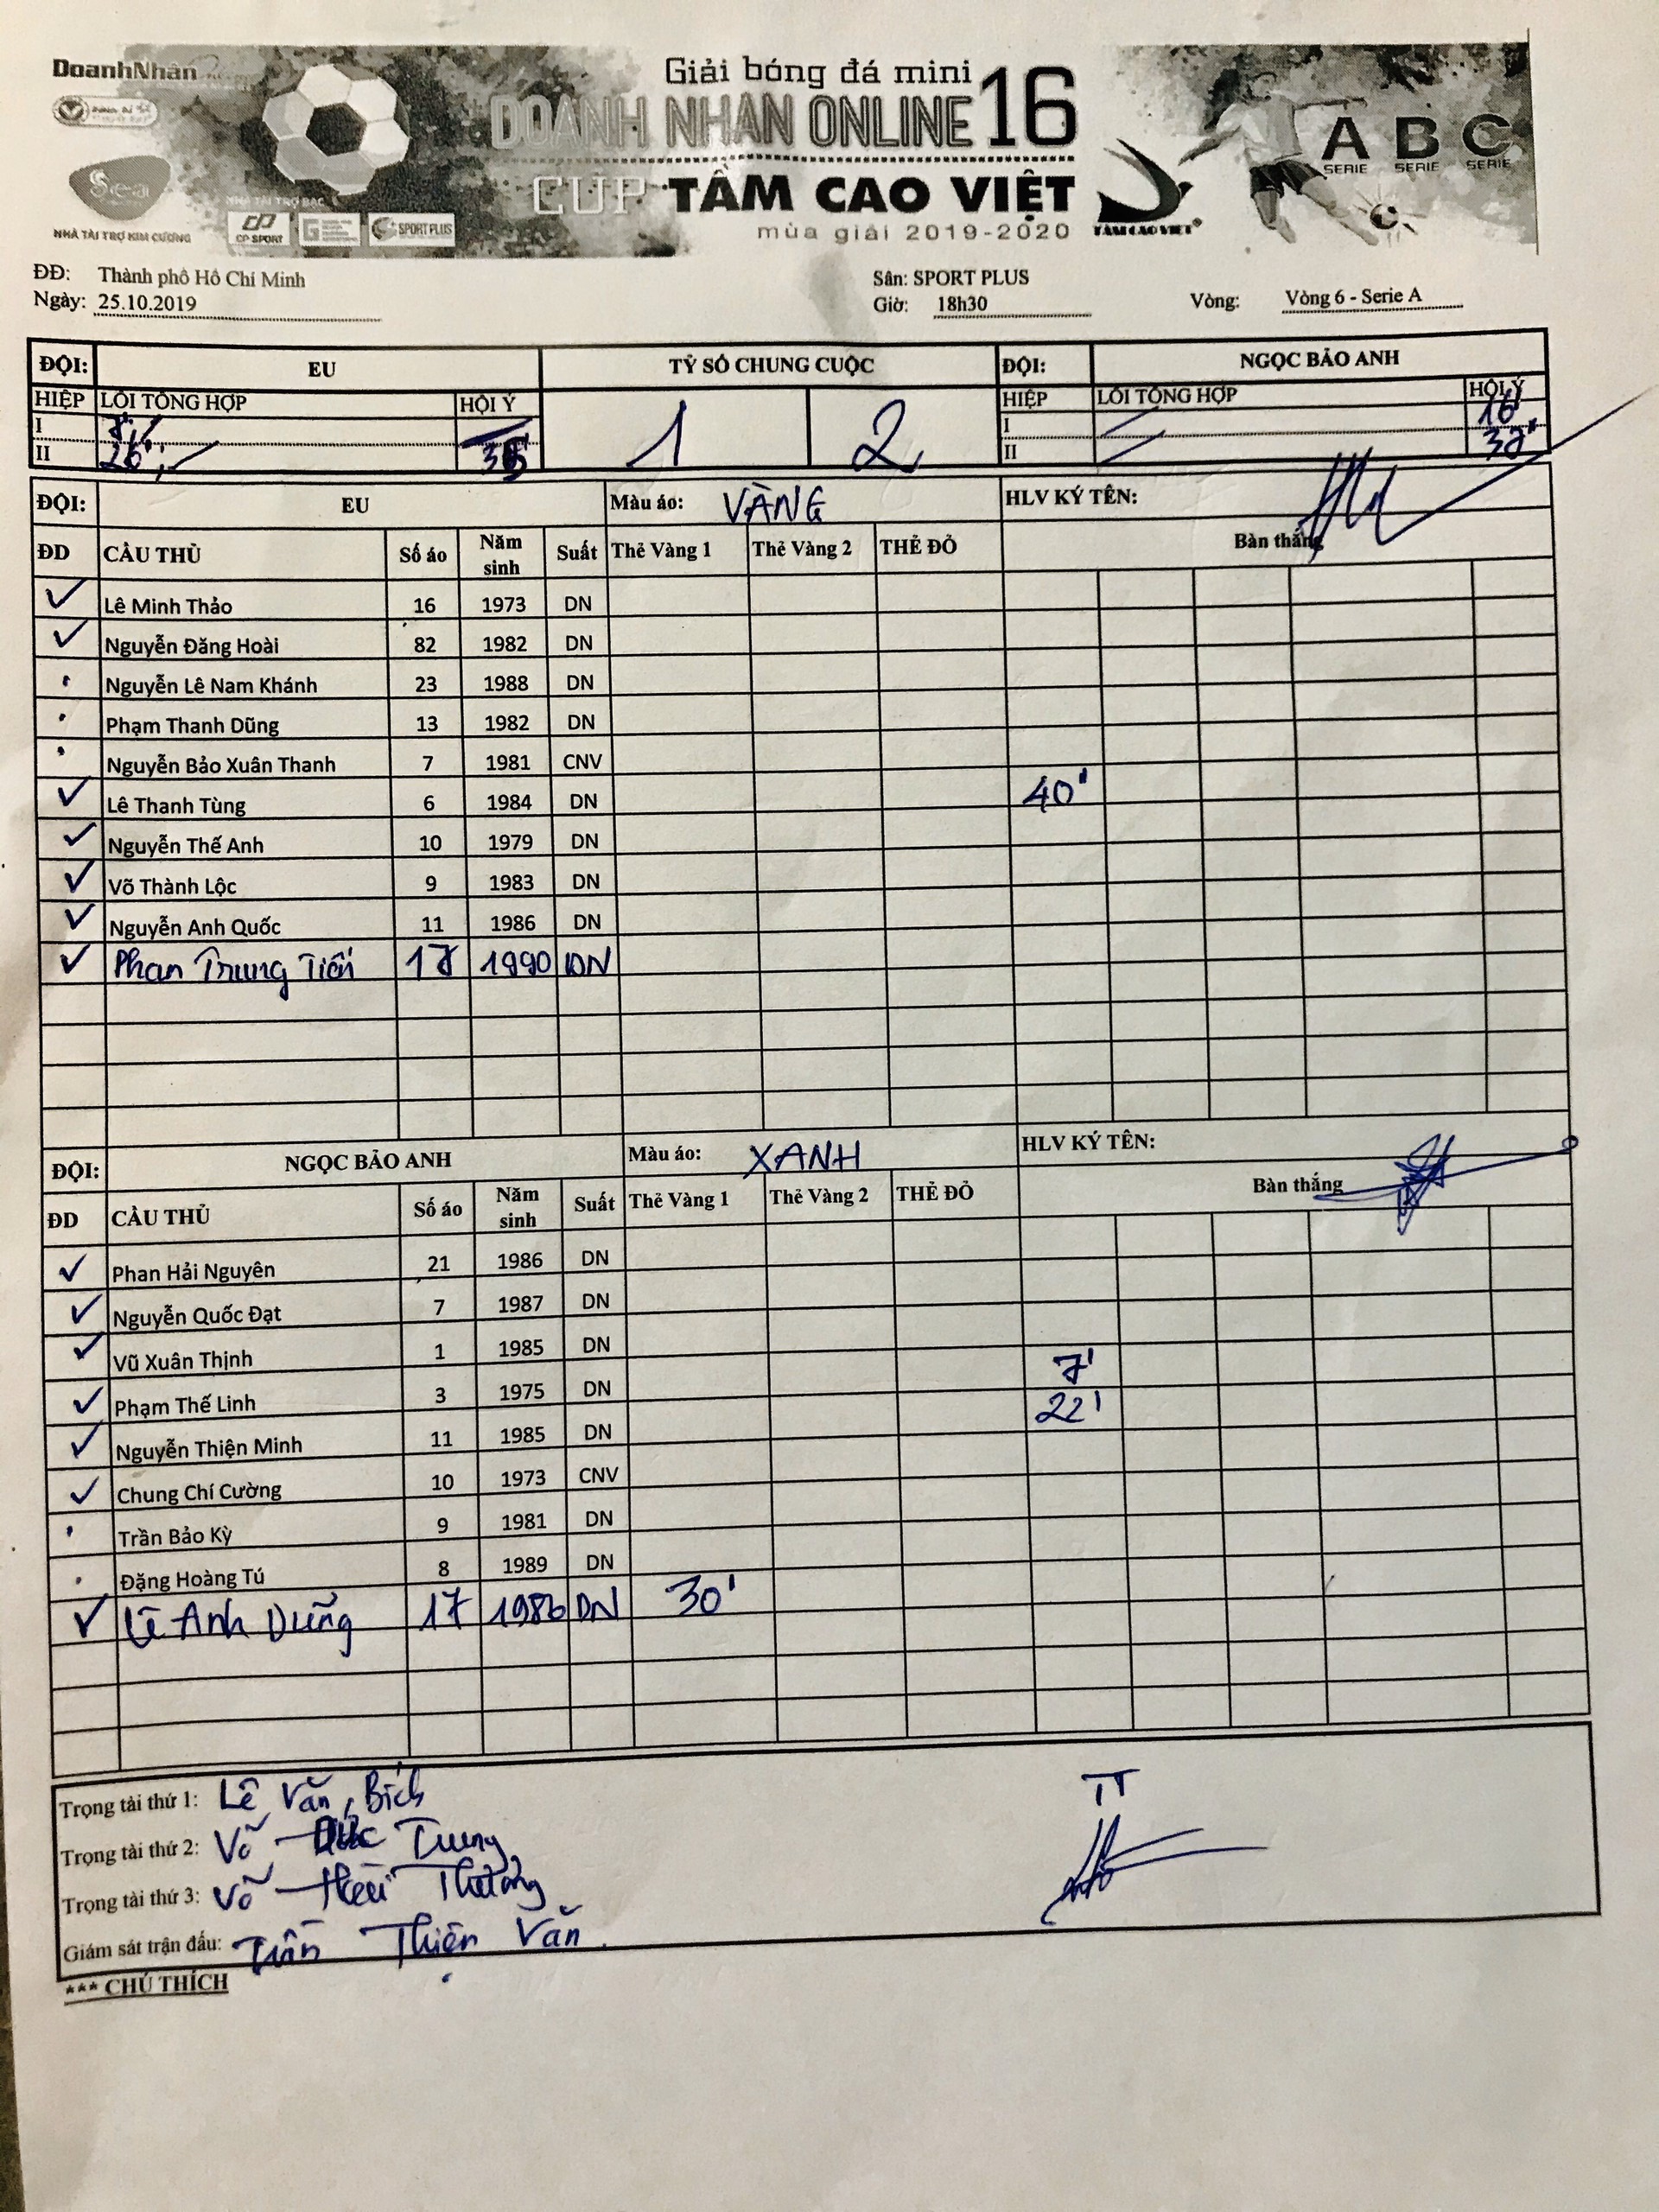 DoanhNhân
Giải bóng đá mini
DOANH NHAN ONLINE 16
CUP TẦM CAO VIỆT
mùa giải 2019-2020
TẦM CAO VIỆT
A B C
SERIE SERIE SERIE
NHÀ TÀI TRỢ BẠC
NHÀ TÀI TRỢ KIM CƯƠNG
CP SPORT
SPORT PLUS
ĐĐ: Thành phố Hồ Chí Minh Sân: SPORT PLUS
Ngày: 25.10.2019 Giờ: 18h30 Vòng: Vòng 6 - Serie A
ĐỘI: EU TỶ SỐ CHUNG CUỘC ĐỘI: NGỌC BẢO ANH
HIỆP LỖI TỔNG HỢP HỘI Ý 1 2 HIỆP LỖI TỔNG HỢP HỘI Ý
I 7' I 16'
II 26' II 32'
ĐỘI: EU Màu áo: VÀNG HLV KÝ TÊN:
ĐD CẦU THỦ Số áo Năm sinh Suất Thẻ Vàng 1 Thẻ Vàng 2 THẺ ĐỎ Bàn thắng
Lê Minh Thảo 16 1973 DN
Nguyễn Đăng Hoài 82 1982 DN
Nguyễn Lê Nam Khánh 23 1988 DN
Phạm Thanh Dũng 13 1982 DN
Nguyễn Bảo Xuân Thanh 7 1981 CNV
Lê Thanh Tùng 6 1984 DN 40'
Nguyễn Thế Anh 10 1979 DN
Võ Thành Lộc 9 1983 DN
Nguyễn Anh Quốc 11 1986 DN
Phan Trung Tiến 17 1990 DN
ĐỘI: NGỌC BẢO ANH Màu áo: XANH HLV KÝ TÊN:
ĐD CẦU THỦ Số áo Năm sinh Suất Thẻ Vàng 1 Thẻ Vàng 2 THẺ ĐỎ Bàn thắng
Phan Hải Nguyên 21 1986 DN
Nguyễn Quốc Đạt 7 1987 DN
Vũ Xuân Thịnh 1 1985 DN
Phạm Thế Linh 3 1975 DN 7'
Nguyễn Thiện Minh 11 1985 DN 22'
Chung Chí Cường 10 1973 CNV
Trần Bảo Kỳ 9 1981 DN
Đặng Hoàng Tú 8 1989 DN
Lê Anh Dũng 17 1986 DN 30'
Trọng tài thứ 1: Lê Văn Bích TT
Trọng tài thứ 2: Võ Đức Trung
Trọng tài thứ 3: Võ
Giám sát trận đấu: Trần Thiện Văn
*** CHÚ THÍCH